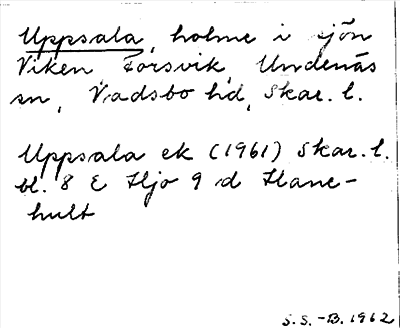 Uppsala, holme i sjön
Viken, Forsvik, Undenäs
sn, Vadsbo hd, Skar. l.
Uppsala ek (1961) Skar. l.
bl. 8 E Hjo 9 d Hane-
hult
S.S. -B. 1962